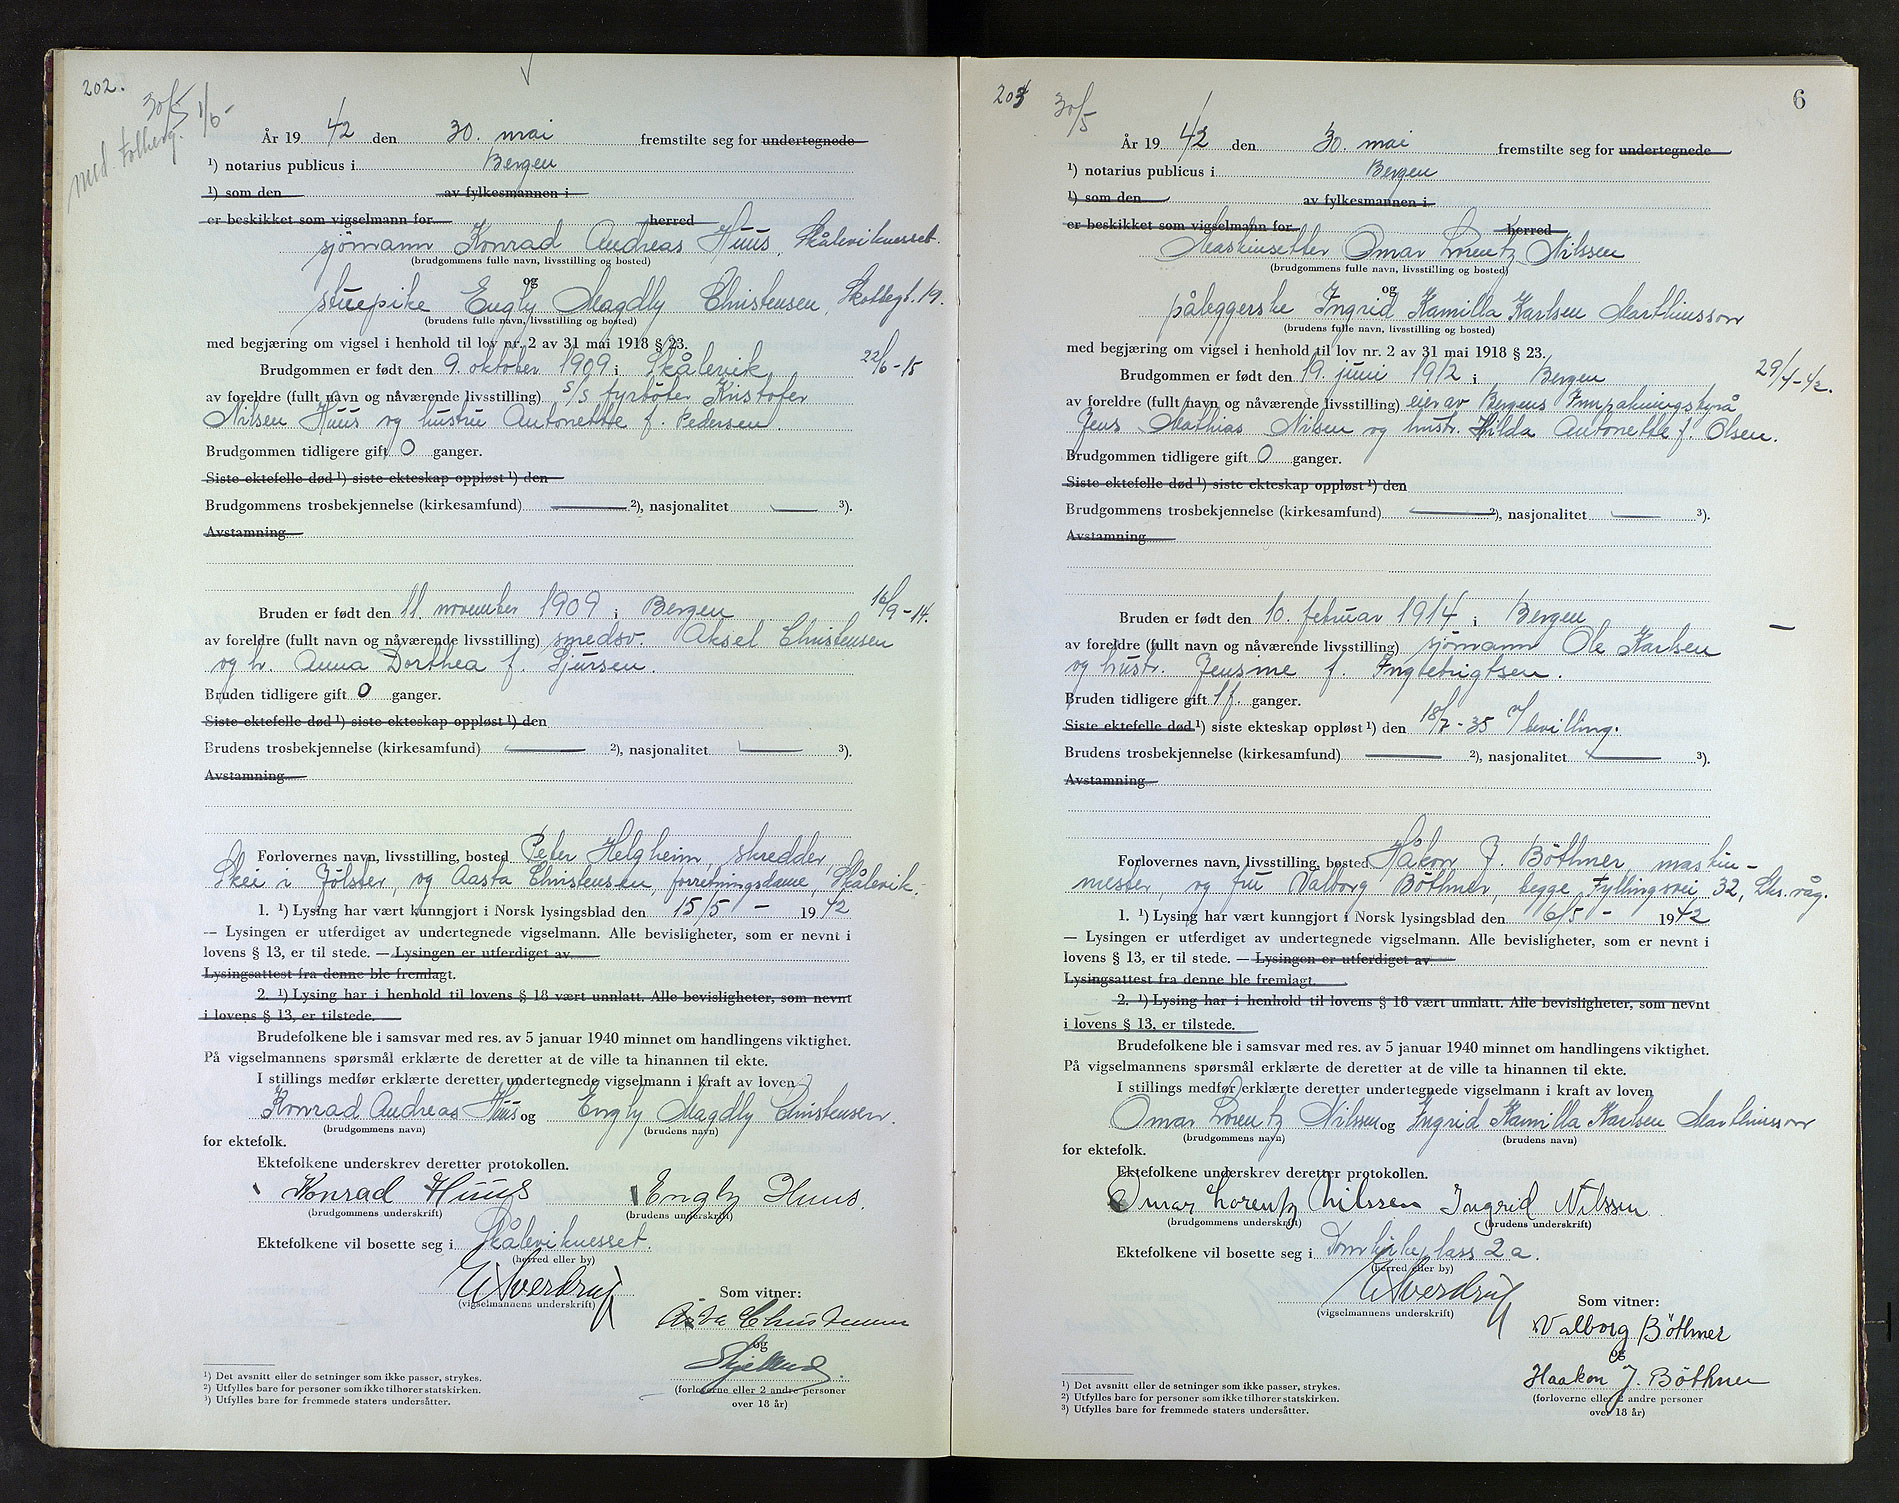 202.
30/5 1/6-
med. Folkerg.
År 19 42 den 30. mai fremstilte seg for undertegnede
¹) notarius publicus i Bergen
¹) som den av fylkesmannen i
er beskikket som vigselmann for herred
sjömann Konrad Andreas Huus, Skåleviknesset.
(brudgommens fulle navn, livsstilling og bosted)
og
stuepike Engly Magdly Christensen, Skottegt. 19.
(brudens fulle navn, livsstilling og bosted)
med begjæring om vigsel i henhold til lov nr. 2 av 31 mai 1918 § 23.
Brudgommen er født den 9. oktober 1909 i Skålevik 22/6-15
av foreldre (fullt navn og nåværende livsstilling) s/s fyrböter Kristofer
Nilsen Huus og hustru Antonette f. Pedersen.
Brudgommen tidligere gift 0 ganger.
Siste ektefelle død ¹) siste ekteskap oppløst ¹) den
Brudgommens trosbekjennelse (kirkesamfund) ²), nasjonalitet ³).
Avstamning
Bruden er født den 11. november 1909 i Bergen 16/9-14.
av foreldre (fullt navn og nåværende livsstilling) smedsv. Aksel Christensen
og h. Anna Dorthea f. Sjursen.
Bruden tidligere gift 0 ganger.
Siste ektefelle død ¹) siste ekteskap oppløst ¹) den
Brudens trosbekjennelse (kirkesamfund) ²), nasjonalitet ³).
Avstamning
Forlovernes navn, livsstilling, bosted Peter Helgheim, skredder,
Skei i Jölster, og Aasta Christensen, forretningsdame, Skålevik.
1. ¹) Lysing har vært kunngjort i Norsk lysingsblad den 15/5 - 1942
— Lysingen er utferdiget av undertegnede vigselmann. Alle bevisligheter, som er nevnt i
lovens § 13, er til stede. — Lysingen er utferdiget av
Lysingsattest fra denne ble fremlagt.
2. ¹) Lysing har i henhold til lovens § 18 vært unnlatt. Alle bevisligheter, som nevnt
i lovens § 13, er tilstede.
Brudefolkene ble i samsvar med res. av 5 januar 1940 minnet om handlingens viktighet.
På vigselmannens spørsmål erklærte de deretter at de ville ta hinannen til ekte.
I stillings medfør erklærte deretter undertegnede vigselmann i kraft av loven
Konrad Andreas Huus og Engly Magdly Christensen.
(brudgommens navn) (brudens navn)
for ektefolk.
Ektefolkene underskrev deretter protokollen.
Konrad Huus Engly Huus.
(brudgommens underskrift) (brudens underskrift)
Ektefolkene vil bosette seg i Skåleviknesset.
(herred eller by)
(vigselmannens underskrift)
Som vitner:
Asta Christensen
og
(forloverne eller 2 andre personer
over 18 år)
¹) Det avsnitt eller de setninger som ikke passer, strykes.
²) Utfylles bare for personer som ikke tilhører statskirken.
³) Utfylles bare for fremmede staters undersåtter.
203 30/5 6
År 19 42 den 30. mai fremstilte seg for undertegnede
¹) notarius publicus i Bergen
¹) som den av fylkesmannen i
er beskikket som vigselmann for herred
Maskinsetter Omar Lorentz Nilssen
(brudgommens fulle navn, livsstilling og bosted)
og
påleggerske Ingrid Kamilla Karlsen Marthinsson
(brudens fulle navn, livsstilling og bosted)
med begjæring om vigsel i henhold til lov nr. 2 av 31 mai 1918 § 23.
Brudgommen er født den 19. juni 1912 i Bergen 29/4-42.
av foreldre (fullt navn og nåværende livsstilling) eier av Bergens Innpakningsbyrå
Jens Mathias Nilsen og hustr. Hilda Antonette f. Olsen.
Brudgommen tidligere gift 0 ganger.
Siste ektefelle død ¹) siste ekteskap oppløst ¹) den
Brudgommens trosbekjennelse (kirkesamfund) ²), nasjonalitet ³).
Avstamning
Bruden er født den 10. februar 1914 i Bergen
av foreldre (fullt navn og nåværende livsstilling) sjömann Ole Karlsen
og hustr. Jensine f. Ingebrigtsen.
Bruden tidligere gift 1 f. ganger.
Siste ektefelle død ¹) siste ekteskap oppløst ¹) den 18/7-35 v/bevilling.
Brudens trosbekjennelse (kirkesamfund) ²), nasjonalitet ³).
Avstamning
Forlovernes navn, livsstilling, bosted Håkon J. Böthner, maskin-
mester, og fru Valborg Böthner, begge Fyllingsvei 32, Lks.våg.
1. ¹) Lysing har vært kunngjort i Norsk lysingsblad den 6/5 - 1942
— Lysingen er utferdiget av undertegnede vigselmann. Alle bevisligheter, som er nevnt i
lovens § 13, er til stede. — Lysingen er utferdiget av
Lysingsattest fra denne ble fremlagt.
2. ¹) Lysing har i henhold til lovens § 18 vært unnlatt. Alle bevisligheter, som nevnt
i lovens § 13, er tilstede.
Brudefolkene ble i samsvar med res. av 5 januar 1940 minnet om handlingens viktighet.
På vigselmannens spørsmål erklærte de deretter at de ville ta hinannen til ekte.
I stillings medfør erklærte deretter undertegnede vigselmann i kraft av loven
Omar Lorentz Nilssen og Ingrid Kamilla Karlsen Marthinsson
(brudgommens navn) (brudens navn)
for ektefolk.
Ektefolkene underskrev deretter protokollen.
Omar Lorentz Nilssen Ingrid Nilssen
(brudgommens underskrift) (brudens underskrift)
Ektefolkene vil bosette seg i Domkirkeplass 2a.
(herred eller by)
(vigselmannens underskrift)
Som vitner:
Valborg Böthner
og
Haakon J. Böthner
(forloverne eller 2 andre personer
over 18 år)
¹) Det avsnitt eller de setninger som ikke passer, strykes.
²) Utfylles bare for personer som ikke tilhører statskirken.
³) Utfylles bare for fremmede staters undersåtter.